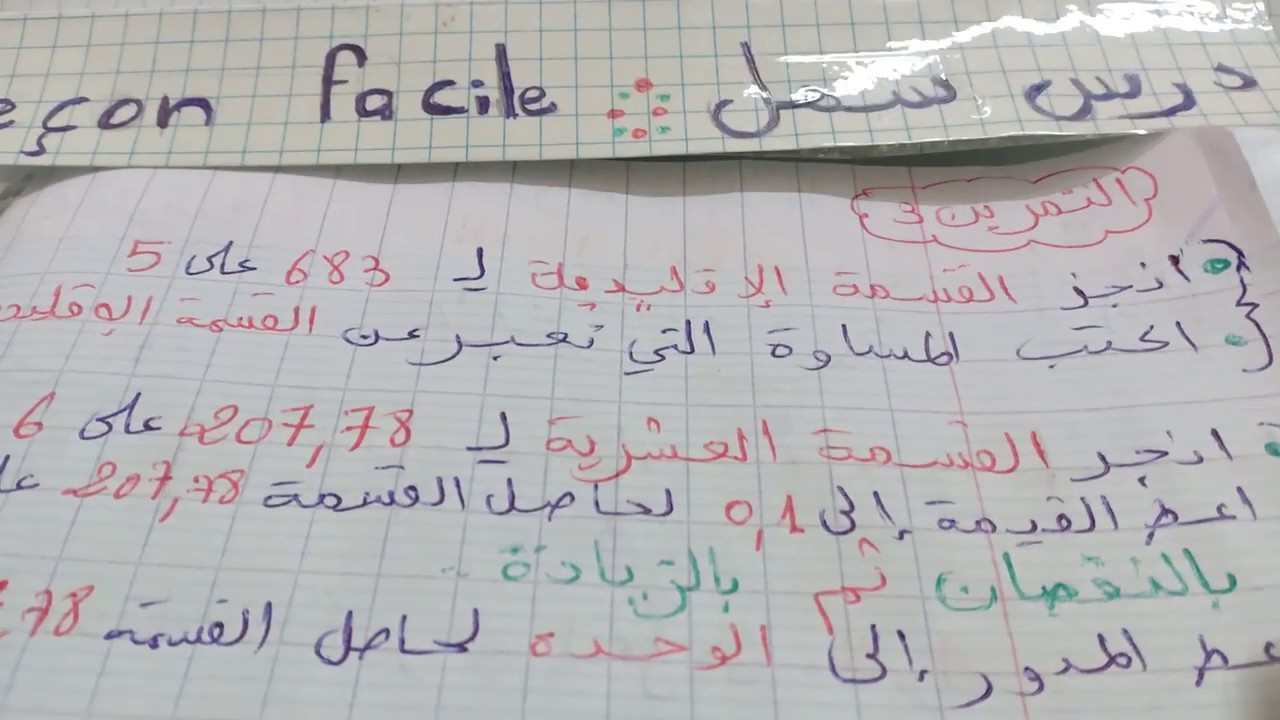 درس سهل eçon facile
التمرين 3
انجز القسمة الإقليدية لـ 683 على 5
اكتب المساوة التي تعبر عن القسمة الإقليد
انجر القسمة العشرية لـ 207,78 على 6
اعط القيمة إلى 0,1 لحاصل القسمة 207,78
بالنقصان ثم بالزيادة
المدور إلى الوحدة لحاصل القسمة 78